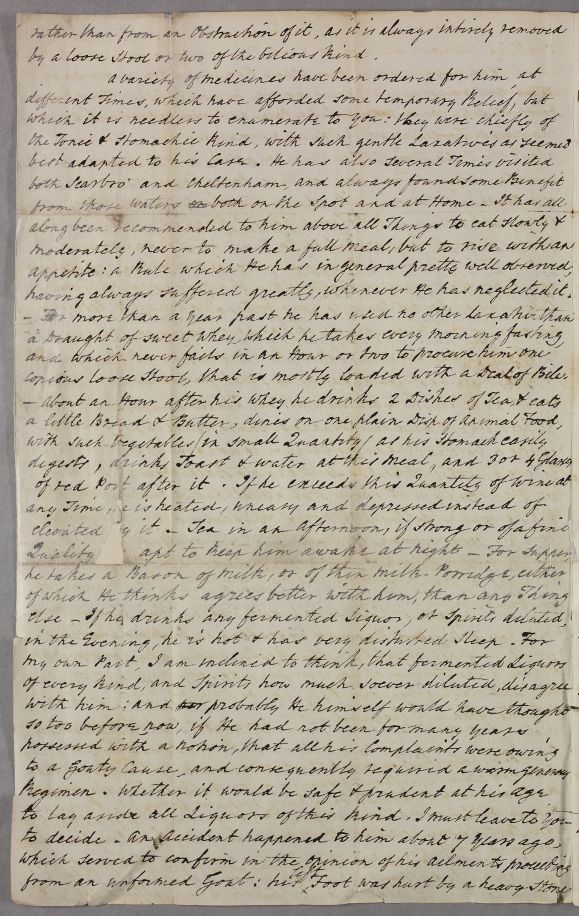 rather than from an Obstruction of it, as it is always intirely removed
by a loose Stool or two of the bilious kind.
a variety of medicines have been ordered for him, at
different Times, which have afforded some temporary Relief, but
which it is needless to enumerate to you: they were chiefly of
the Tonic & Stomachic kind, with such gentle Laxatives as seemed
best adapted to his Case. He has also several Times visited
both Scarbro' and Cheltenham, and always found some Benefit
from those waters both on the Spot and at Home - It has all
along been recommended to him above all Things to eat slowly &
moderately, never to make a full meal, but to rise with an
appetite: a Rule which He has in general pretty well observed,
having always suffered greatly, whenever He has neglected it.
- For more than a year past he has used no other Laxative than
a Draught of sweet whey, which he takes every morning fasting,
and which never fails in an Hour or two to procure him one
copious loose Stool, that is mostly loaded with a Deal of Bile.
- about an Hour after his whey he drinks 2 Dishes of Tea, & eats
a little Bread & Butter, dines on one plain Dish of animal Food,
with such vegetables (in small Quantity) as his Stomach easily
digests, drinks Toast & water at this meal, and 3 or 4 Glasses
of red Port after it. If he exceeds this Quantity of wine at
any Time, he is heated, uneasy and depressed instead of
elevated by it - Tea in an afternoon, if strong or of a fine
Quality apt to keep him awake at night - For Supper
he takes a Bason of milk, or of thin milk-Porridge, either
of which He thinks agrees better with him, than any Thing
else - If he drinks any fermented Liquor, or Spirits diluted,
in the Evening, he is hot & has very disturbed Sleep. For
my own Part, I am inclined to think, that fermented Liquors
of every kind, and Spirits how much soever diluted, disagree
with him: and probably He himself would have thought
so too before now, if He had not been for many years
possessed with a notion, that all his Complaints were owing
to a Gouty Cause, and consequently required a warm generous
Regimen. Whether it would be safe & prudent at his age
to lay aside all Liquors of this kind, I must leave to You
to decide. - An accident happened to him about 7 years ago
which served to confirm in the opinion of his ailments proceeding
from an unformed Gout: his left Foot was hurt by a heavy Stone